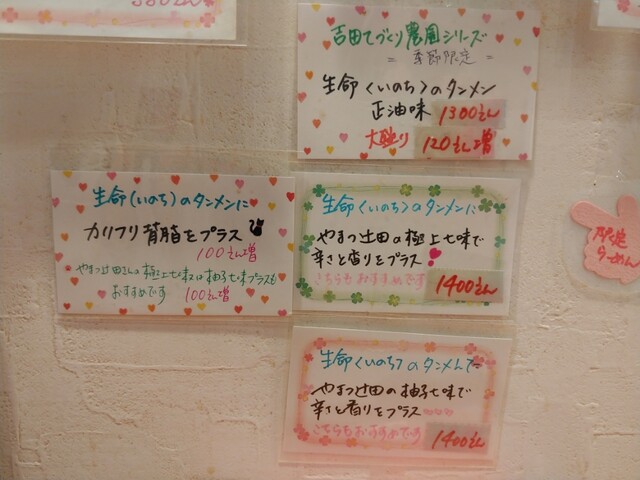 吉田てづくり農園シリーズ
= 季節限定 =
生命〈いのち〉のタンメン
正油味 1300えん
大盛り 120えん増
生命(いのち)のタンメンに
カリフリ背脂をプラス
100えん増
やまつ辻田さんの極上七味又は柚子七味プラスも
おすすめです 100えん増
生命〈いのち〉のタンメンに
やまつ辻田の極上七味で
辛さと香りをプラス
こちらもおすすめです 1400えん
生命〈いのち〉のタンメンに
やまつ辻田の柚子七味で
辛さと香りをプラス
こちらもおすすめです 1400えん
限定
らーめん